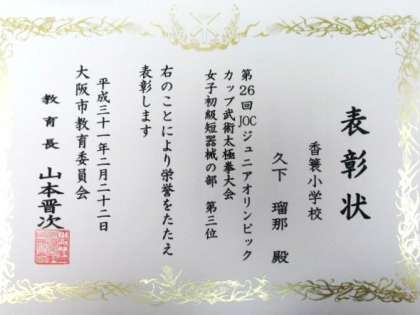 表彰状
香簑小学校
久下 瑠那 殿
第26回JOCジュニアオリンピック
カップ武術太極拳大会
女子初級短器械の部 第三位
右のことにより栄誉をたたえ
表彰します
平成三十一年二月二十二日
大阪市教育委員会
教育長 山本晋次